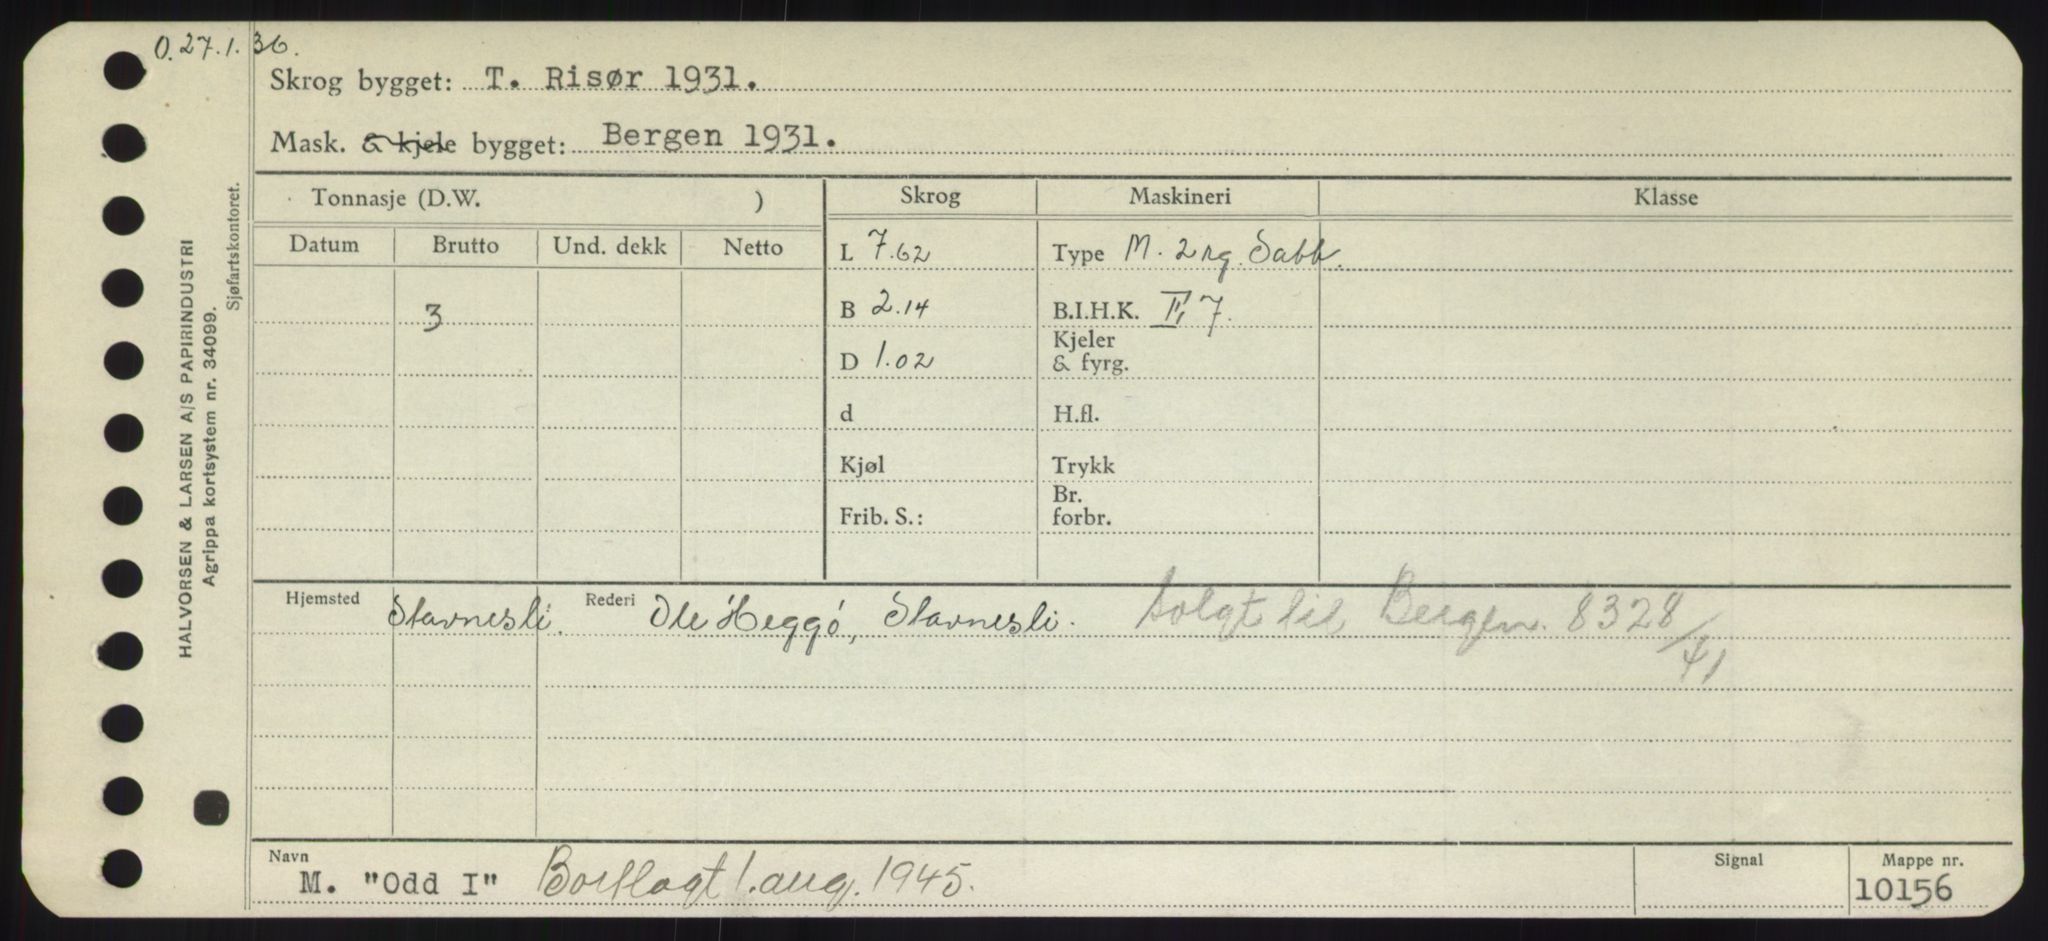 O. 27.1.36.
Skrog bygget: T. Risør 1931.
Mask. & kjele bygget: Bergen 1931.
Tonnasje (D.W. ) Skrog Maskineri Klasse
Datum Brutto Und. dekk Netto
L 7.62 Type M. 2 rg. Sabb.
3 B 2.14 B.I.H.K. II, 7.
Kjeler
D 1.02 & fyrg.
d H.fl.
Kjøl Trykk
Br.
Frib. S.: forbr.
Hjemsted Stavnesli. Rederi Ole Heggø, Stavnesli. Solgt til Bergen. 8328/41
Navn Signal Mappe nr.
M. "Odd I" Bortlagt 1. aug. 1945. 10156
HALVORSEN & LARSEN A/S PAPIRINDUSTRI
Agrippa kortsystem nr. 34099.
Sjøfartskontoret.